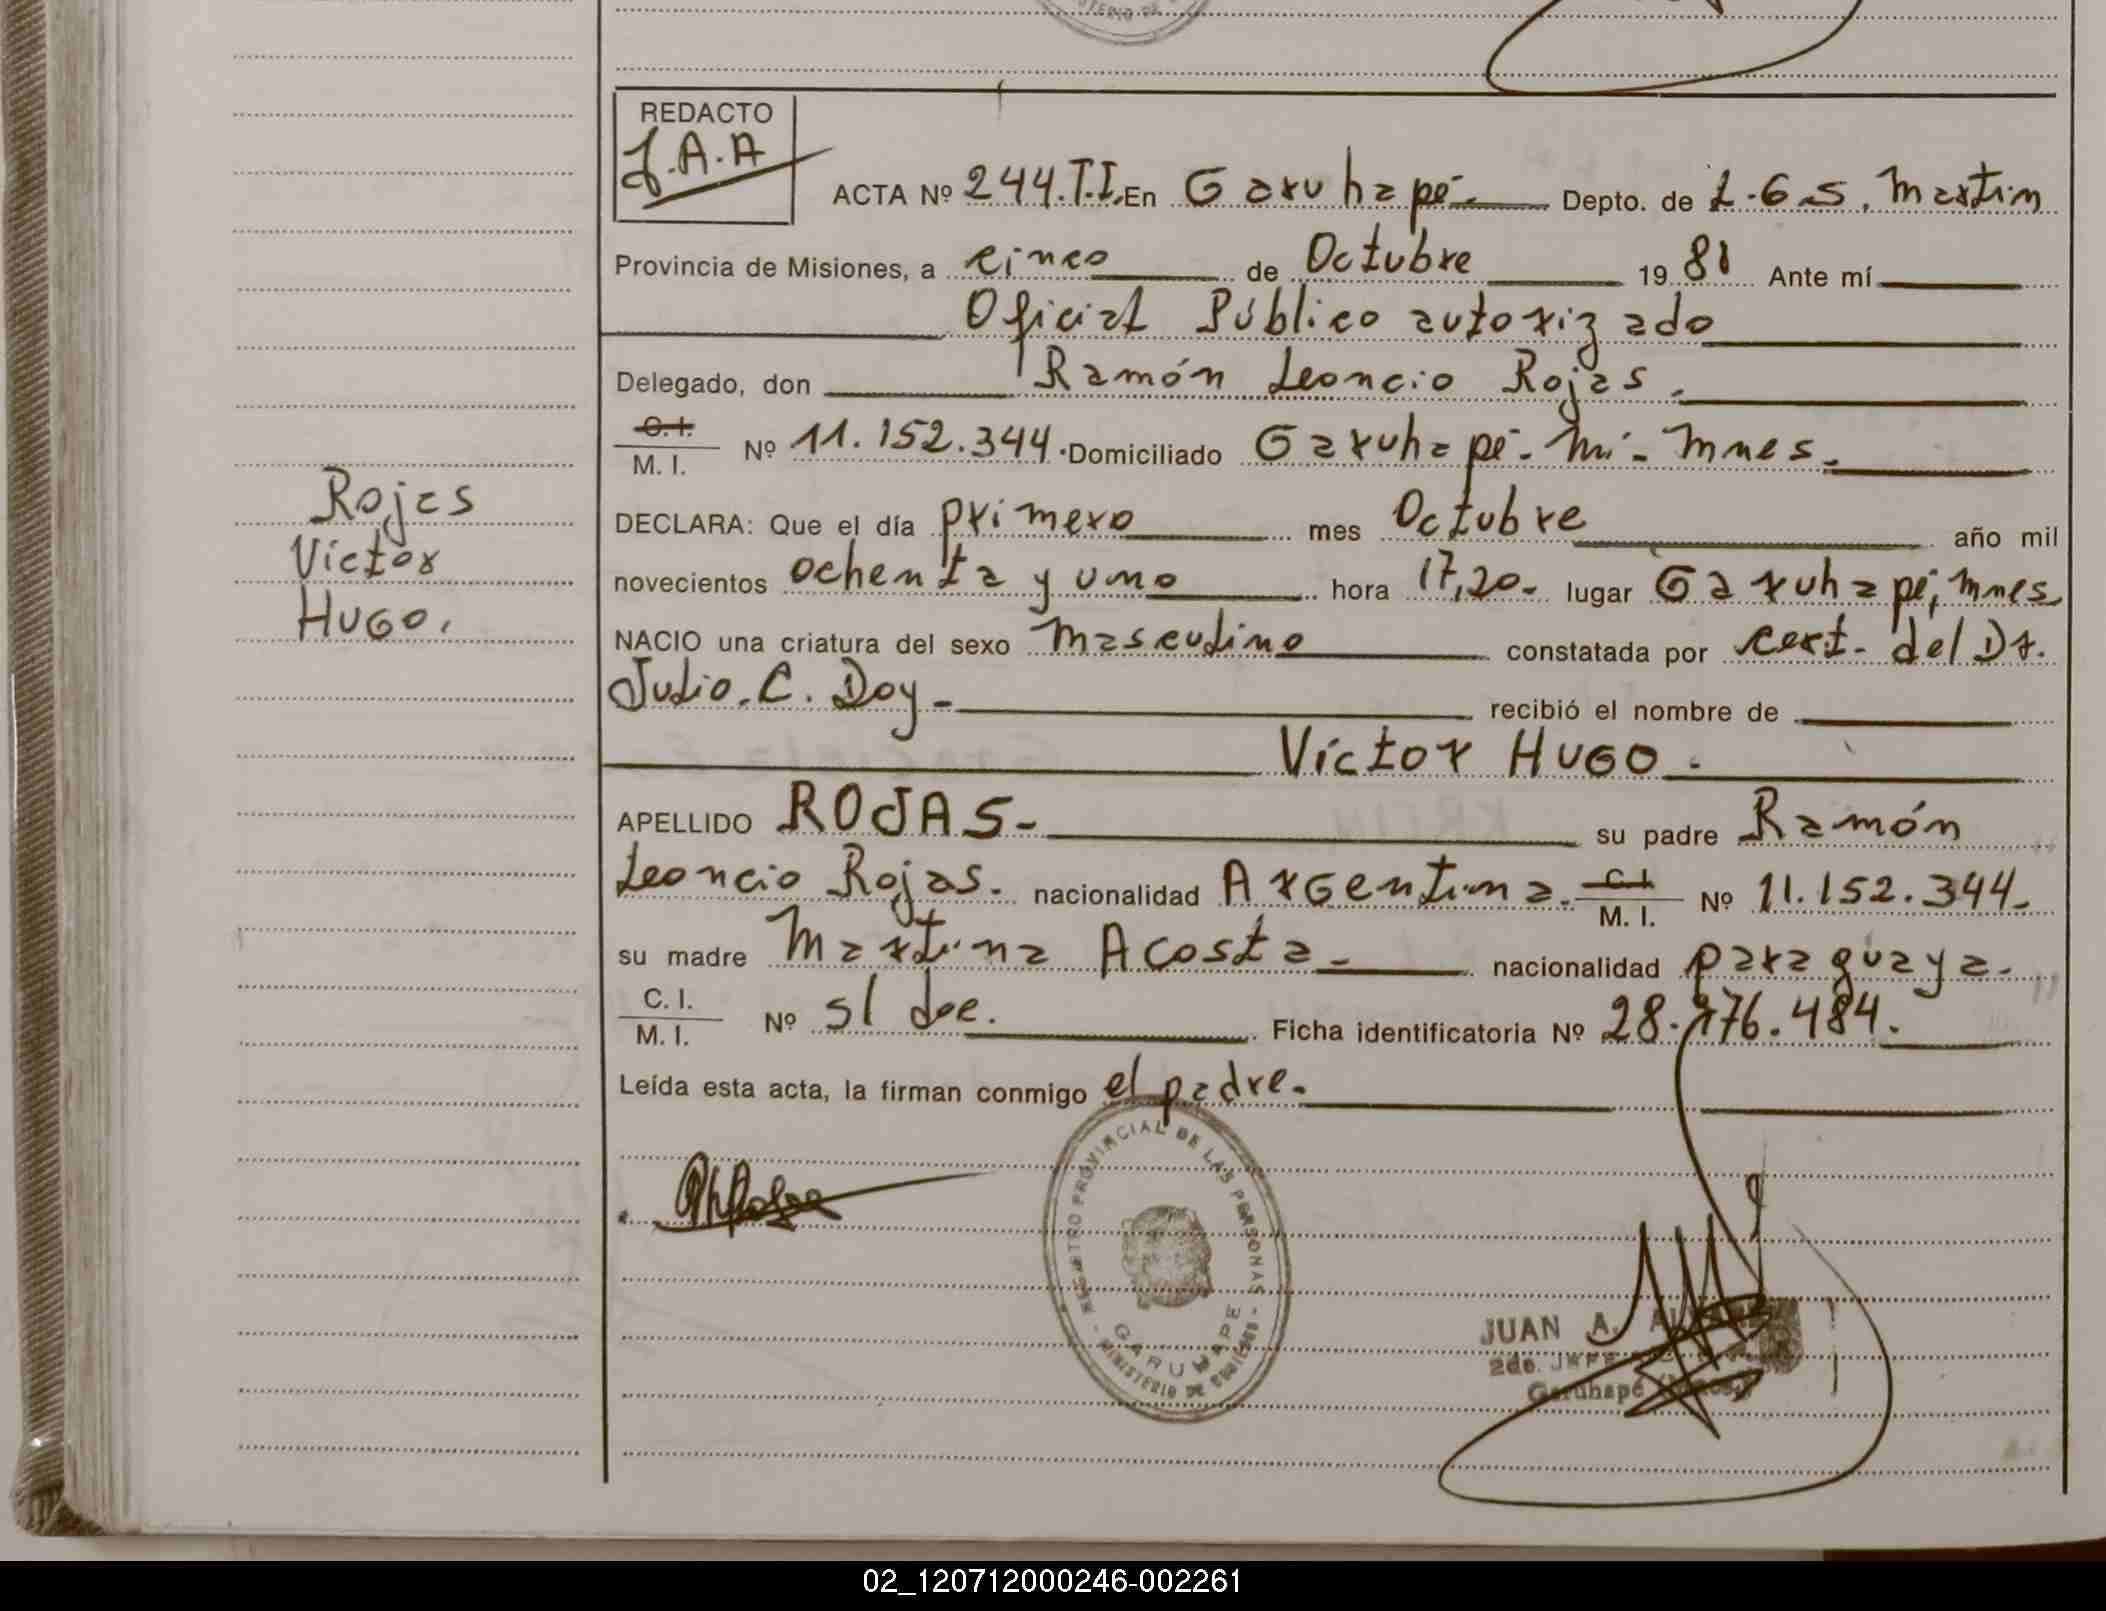 MINISTERIO DE
REDACTO
J.A.A
ACTA Nº 244.T.I. En Garuhapé.- Depto. de L.G.S. Martin
Provincia de Misiones, a cinco de Octubre 19 81 Ante mí
Oficial Público autorizado
Delegado, don Ramón Leoncio Rojas.
C. I.
M. I. Nº 11.152.344. Domiciliado Garuhapé- Mi- Mnes.
DECLARA: Que el día primero mes Octubre año mil
novecientos ochenta y uno hora 17,20- lugar Garuhapé, Mnes
NACIO una criatura del sexo masculino constatada por cert. del Dr.
Julio. C. Doy- recibió el nombre de
Víctor HUGO.
APELLIDO ROJAS- su padre Ramón
Leoncio Rojas. nacionalidad Argentina. C. I. M. I. Nº 11.152.344.
su madre Martina Acosta- nacionalidad paraguaya.
C. I.
M. I. Nº s/ doc. Ficha identificatoria Nº 28.276.484.
Leída esta acta, la firman conmigo el padre.
Rojas
Víctor
HUGO.
REGISTRO PROVINCIAL DE LAS PERSONAS
GARUHAPE
MINISTERIO DE GOBIERNO
JUAN A.
2do. JEFE
Garuhapé (Mnes.)
02_120712000246-002261